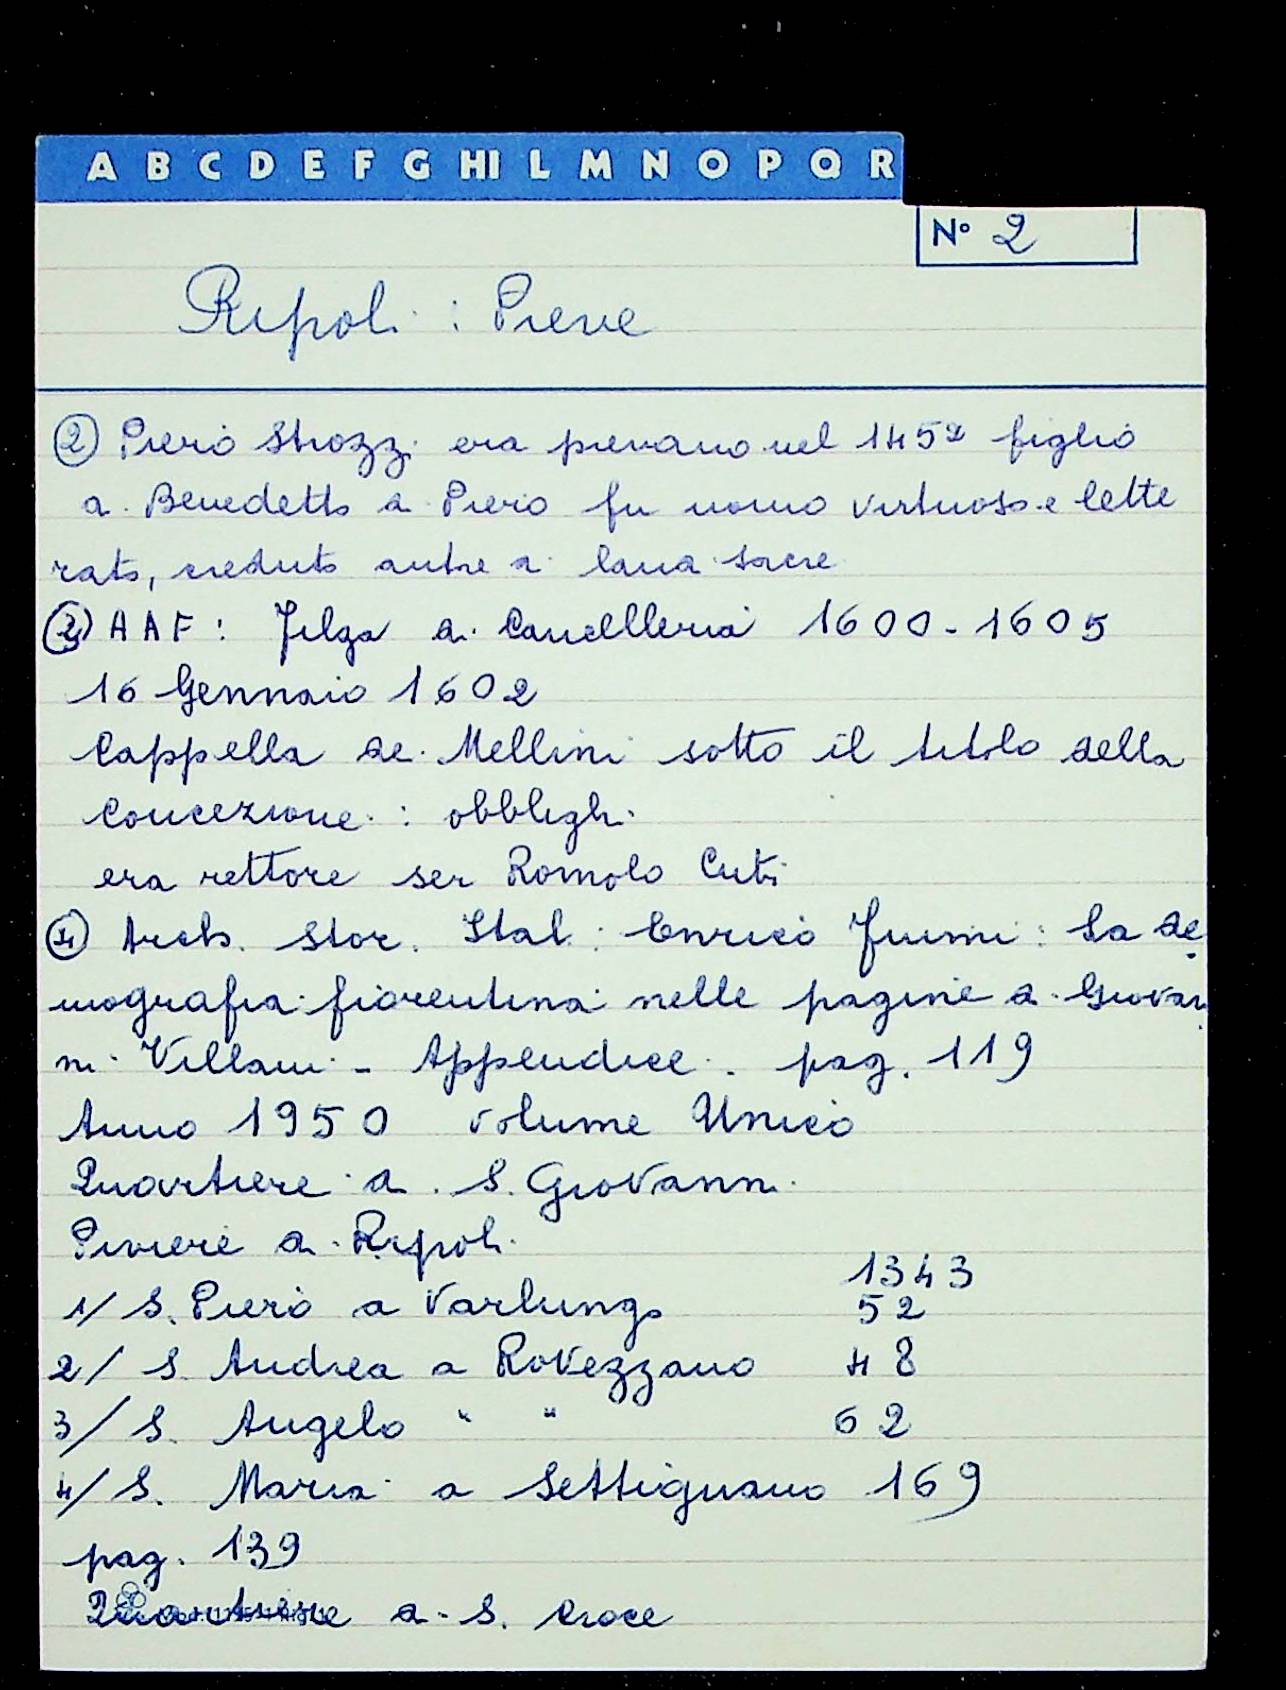 A B C D E F G HI L M N O P Q R
N° 2
Ripoli : Pieve
② Piero Strozzi era pievano nel 1452 figlio
di Benedetto di Piero fu uomo virtuoso e lette
rato, creduto autore di laudi sacre
③ AAF: Filza di Cancelleria 1600-1605
16 Gennaio 1602
Cappella dei Mellini sotto il titolo della
Concezione : obblighi
era rettore ser Romolo Cuti
④ Arch. Stor. Ital. : Enrico Fiumi : La de
mografia fiorentina nelle pagine di Giovan
ni Villani - Appendice. pag. 119
Anno 1950 volume Unico
Quartiere di S. Giovanni
Piviere di Ripoli
1343
1/ S. Piero a Varlungo 52
2/ S. Andrea a Rovezzano 48
3/ S. Angelo " " 62
4/ S. Maria a Settignano 169
pag. 139
Quartiere di S. Croce